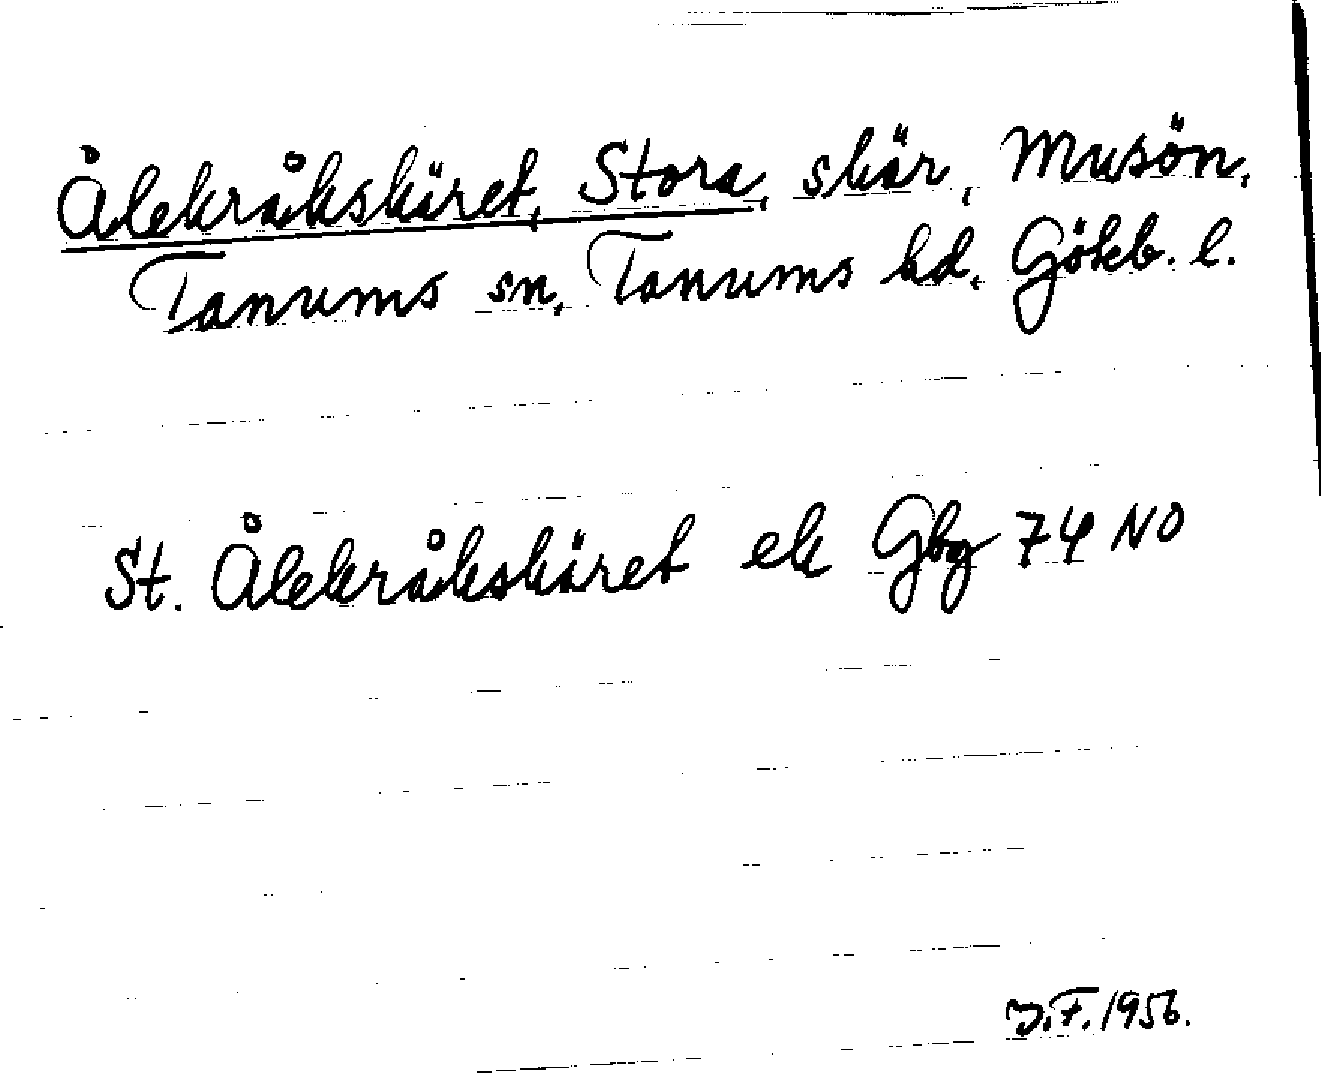 Ålekråkskäret, Stora, skär, Musön,
Tanums sn, Tanums hd, Göteb. l.
St. Ålekråkskäret ek Gbg 74 NO
J.F. 1956.